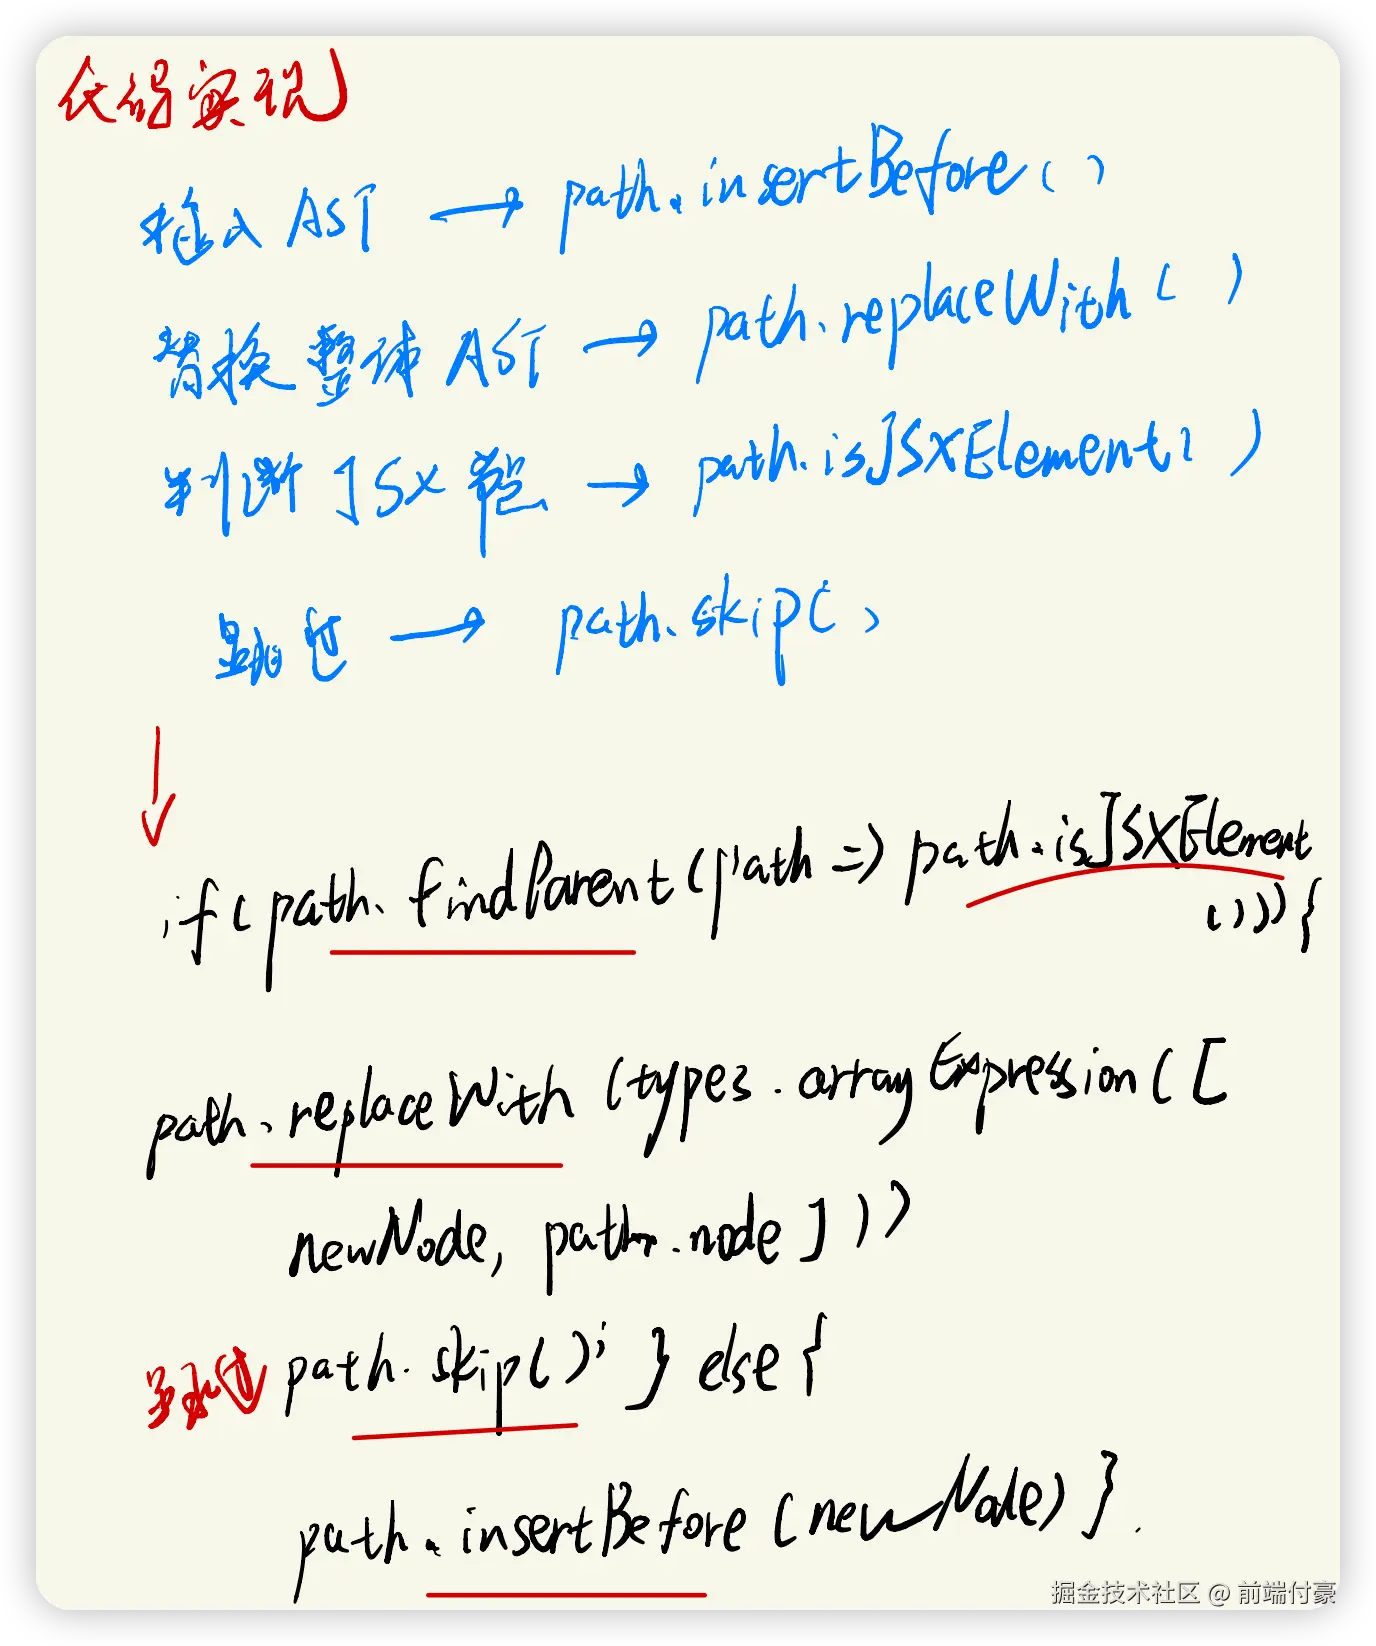 代码实现
插入 AST → path.insertBefore()
替换整体 AST → path.replaceWith()
判断 JSX 节点 → path.isJSXElement()
跳过 → path.skip()
↓
if(path.findParent(path => path.isJSXElement
())){
path.replaceWith(types.arrayExpression([
newNode, path.node]))
跳过 path.skip(); } else {
path.insertBefore(newNode) }
掘金技术社区 @ 前端付豪